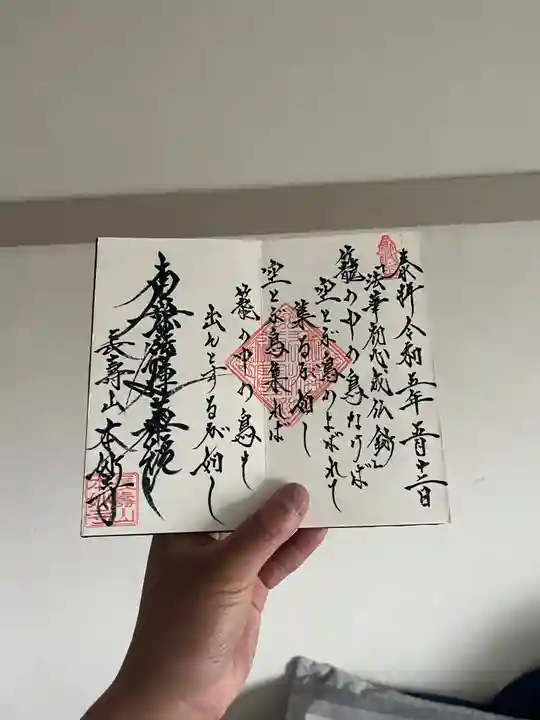 奉拝 令和五年 五月十三日
法華初心成仏鈔
籠の中の鳥なけば
空とぶ鳥のよばれて
集るが如し
空とぶ鳥集れば
籠の中の鳥も
出んとするが如し
南無妙法蓮華経
長壽山 本妙寺